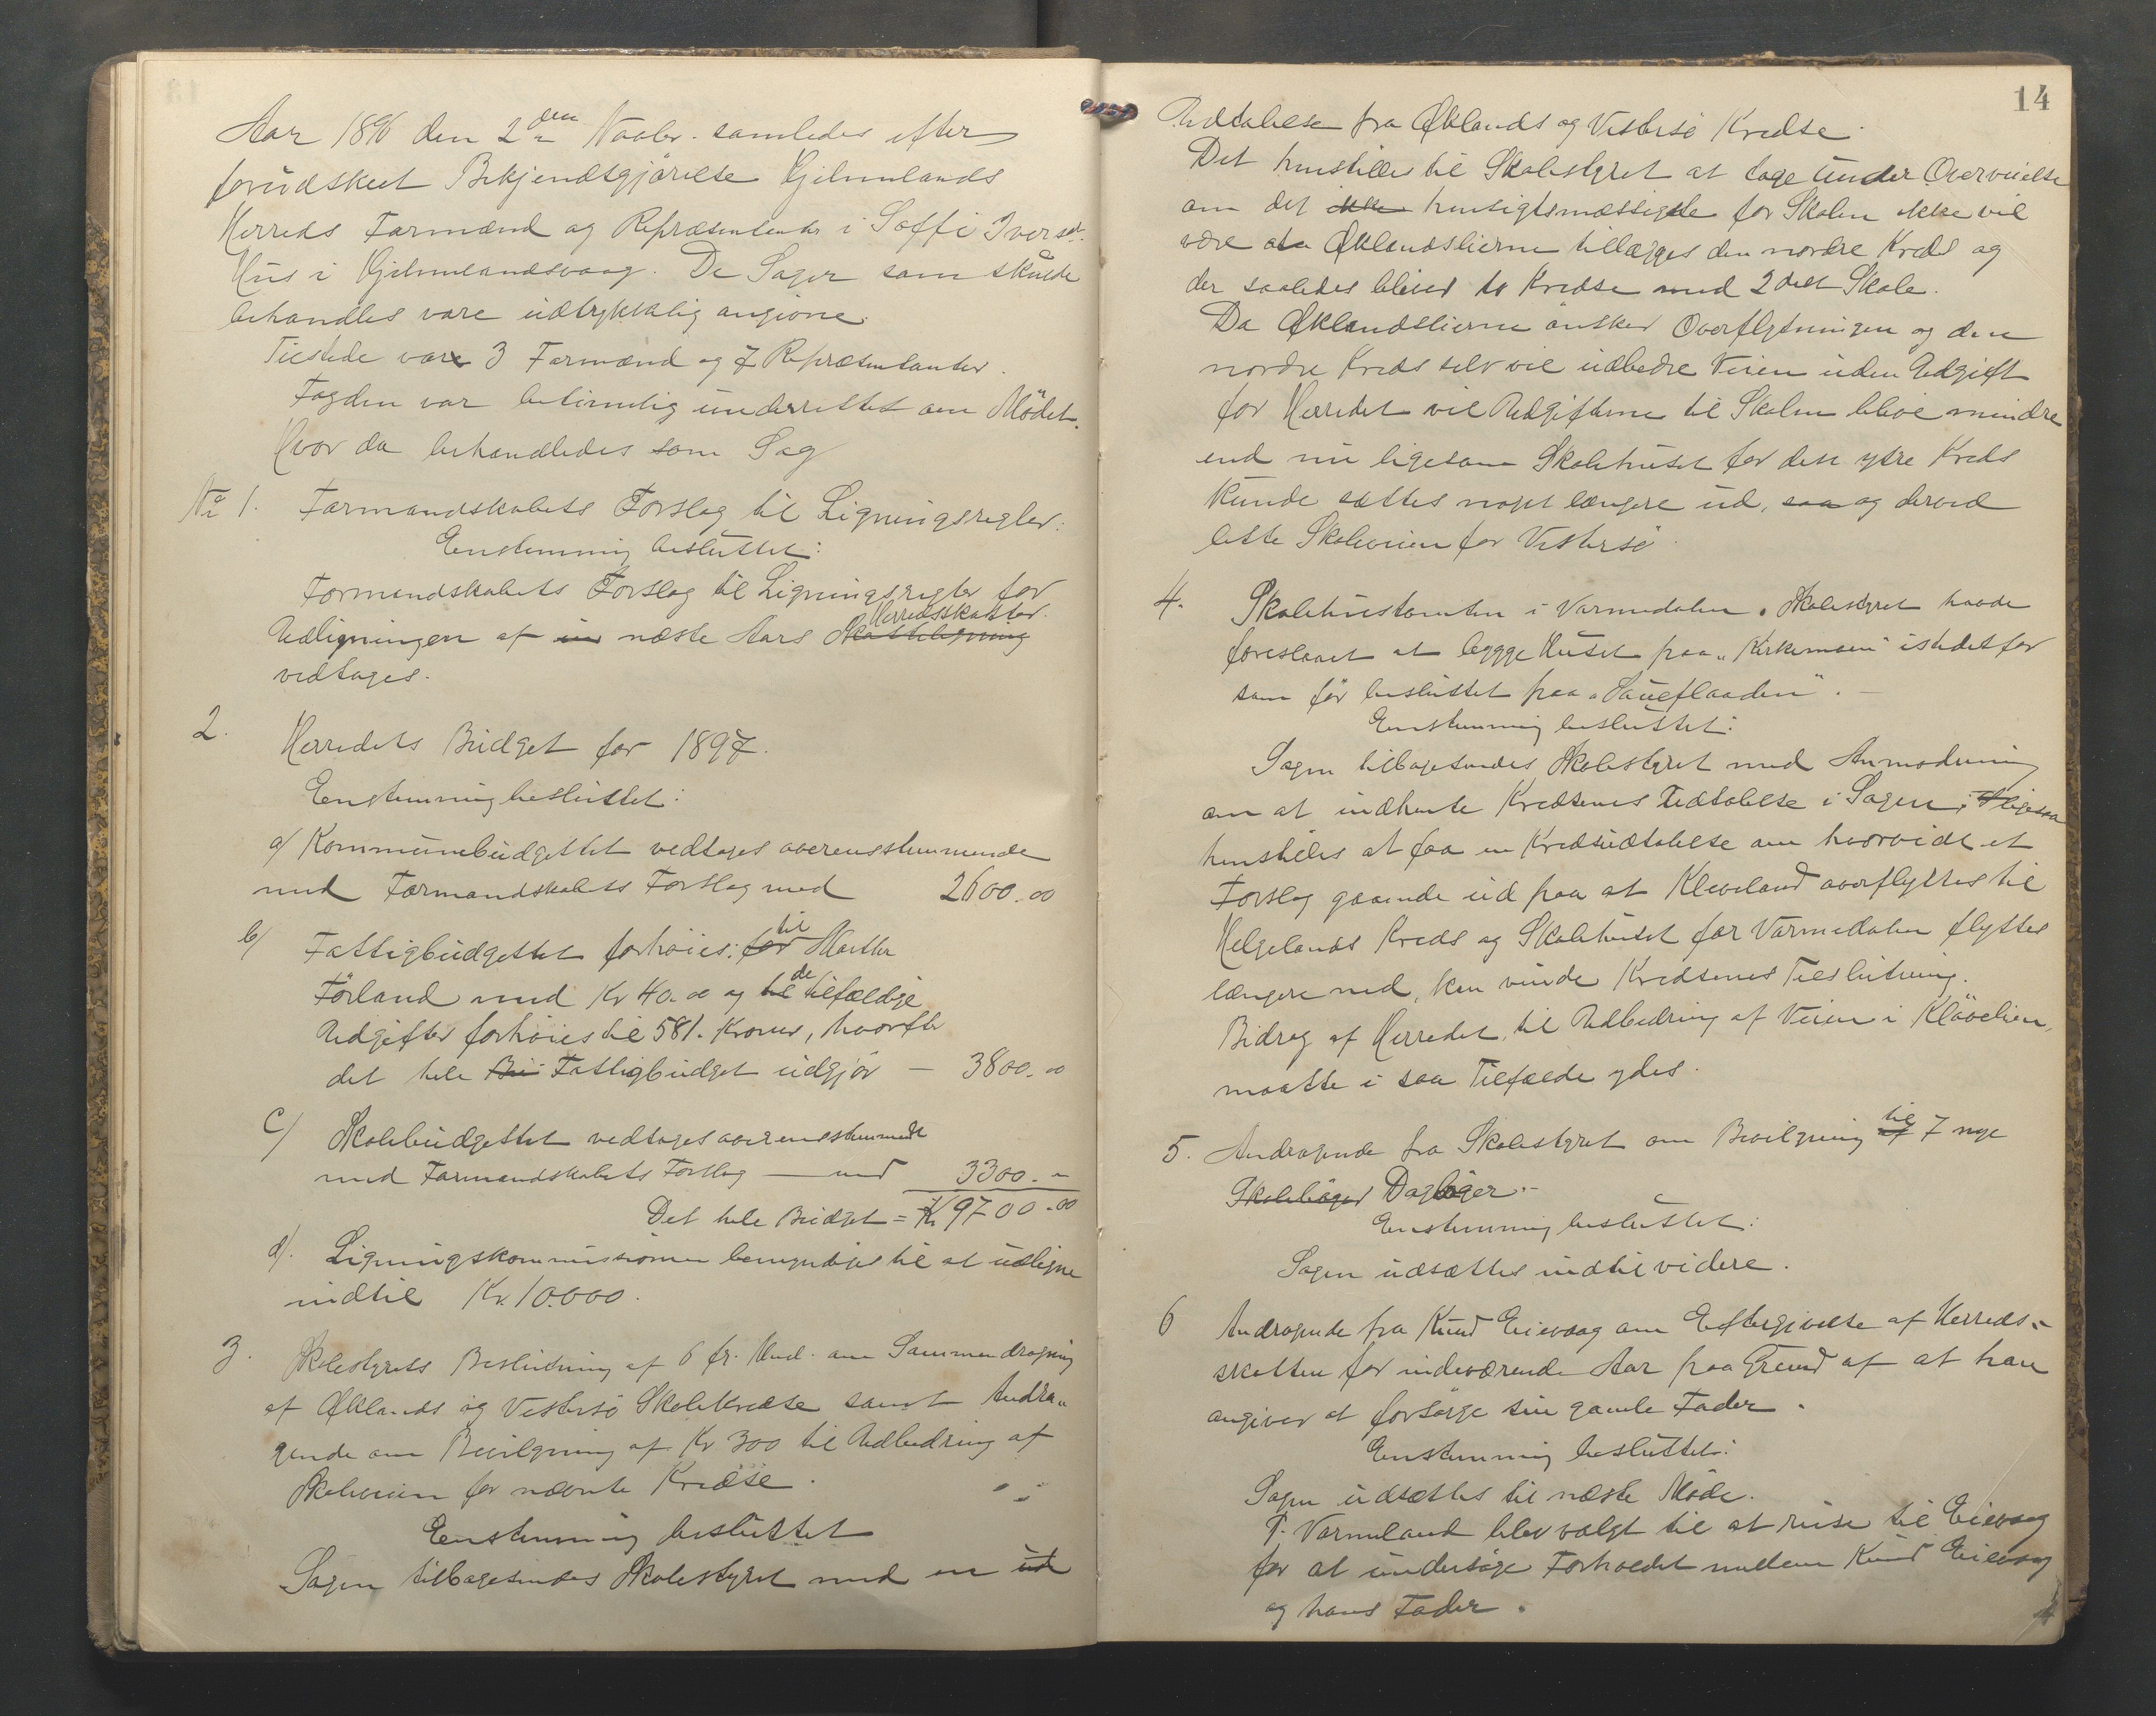 Aar 1896 den 2den Novbr. samledes efter
forudskeet Bekjendtgjörelse Hjelmelands
Herreds Formænd og Repræsentanter i Soffi Ivers dr.
Hus i Hjelmelandsvaag. De Sager som skulde
behandles vare udtrykkelig angivne.
Tilstede vare 3 Formænd og 7 Repræsentanter.
Fogden var betimelig underrettet om Mödet.
Hvor da behandledes som Sag
No 1. Formandskabets Forslag til Ligningsregler:
Enstemmig besluttet:
Formandskabets Forslag til Ligningsregler for
Herredsskatter.
Udligningen af næste Aars Skatteligning
vedtages.
2. Herredets Budget for 1897.
Enstemmig besluttet:
a/ Kommunebudgettet vedtages overensstemmende
med Formandskabets Forslag med 2600.00
til
b/ Fattigbudgettet forhöies: for Marthe
de
Förland med Kr 40.00 og til tilfældige
Udgifter forhöies til 581. Kroner, hvorefter
det hele Bu Fattigbudget udgjör — 3800.00
c/ Skolebudgettet vedtages overensstemmende
med Formandskabets Forslag — med 3300.-
Det hele Budget = Kr 9700.00
d/. Ligningskommissionen bemyndiges til at udligne
indtil Kr. 10.000.
3. Skolestyrets Beslutning af 6 fr. Md. om Sammendragning
af Øklands og Vestersö Skolekredse samt Andra„
gende om Bevilgning af Kr 300 til Udbedring af
Skoleveien for nævnte Kredse.
Enstemmig besluttet
Sagen tilbagesendes Skolestyret med en ud
14
Udtalelse fra Øklands og Vestersö Kredse.
Det henstilles til Skolestyret at tage under Overveielse
om det ikke hensigtsmæssigste for Skolen ikke vil
være at Øklandslierne tillægges den nordre Kreds og
der saaledes bliver to Kredse med 2delt Skole.
Da Øklandslierne önsker Overflytningen og den
nordre Kreds selv vil udbedre Veien uden Udgift
for Herredet vil Udgifterne til Skolen blive mindre
end nu ligesom Skolehuset for den ydre Kreds
kunde sættes noget længere ud, saa og derved
lette Skoleveien for Vestersö.
4. Skolehustomten i Varmedalen. Skolestyret havde
foreslaaet at lægge Huset paa „Kirkemoen" istedetfor
som för besluttet paa „Saueflaaden". —
Enstemmig besluttet:
Sagen tilbagesendes Skolestyret med Anmodning
om at indhente Kredsenes Udtalelse i Sagen; ligesaa
henstilles at faa en Kredsudtalelse om hvorvidt et
Forslag gaaende ud paa at Kleveland overflyttes til
Helgelands Kreds og Skolehuset for Varmedalen flyttes
længere ned, kan vinde Kredsenes Tilslutning.
Bidrag af Herredet til Udbedring af Veien i Klövelien,
maatte i saa Tilfælde ydes.
til
5. Andragende fra Skolestyret om Bevilgning af 7 nye
Skoleböger Dagböger.-
Enstemmig besluttet:
Sagen udsættes indtil videre.
6 Andragende fra Knud Eievaag om Eftergivelse af Herreds-
skatten for indeværende Aar paa Grund af at han
angiver at forsörge sin gamle Fader.
Enstemmig besluttet:
Sagen udsættes til næste Möde.
P. Varmeland blev valgt til at reise til Eievaag
for at undersöge Forholdet mellem Knud Eievaag
og hans Fader.